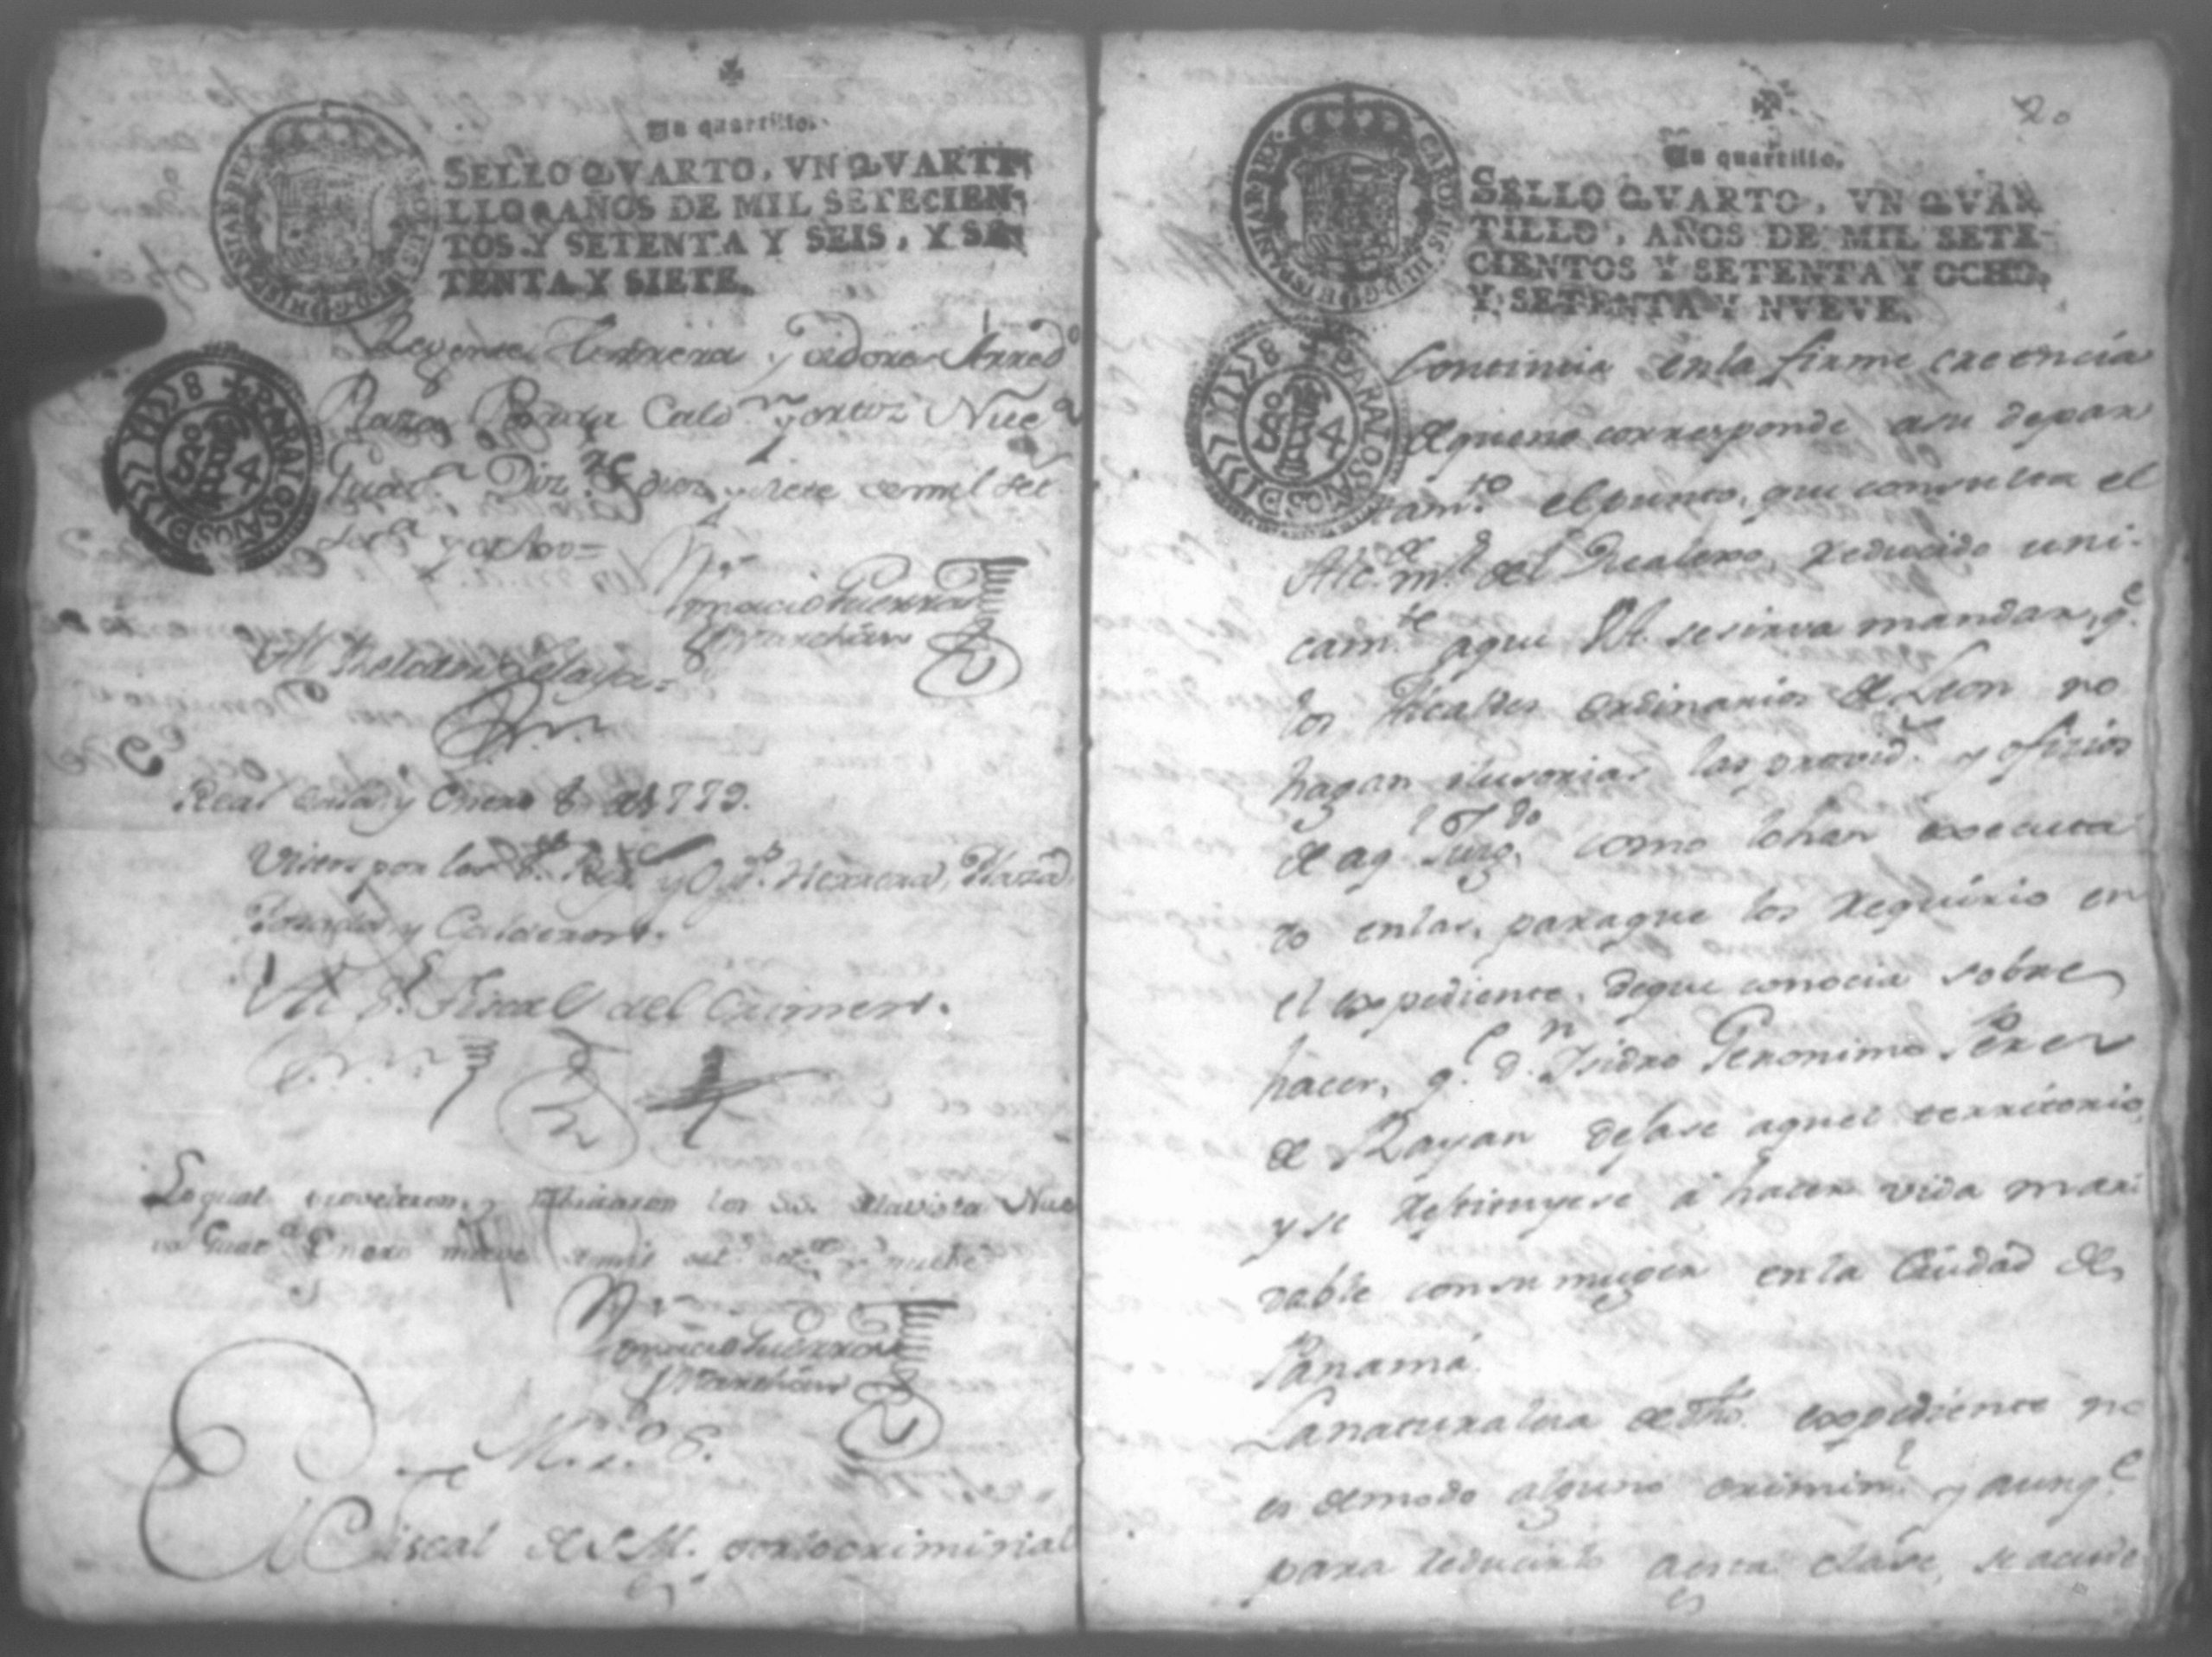 Un quartillo.
SELLO QVARTO, VN QVARTI
LLO, AÑOS DE MIL SETECIEN
TOS Y SETENTA Y SEIS, Y SE
TENTA Y SIETE.
Regente Herrera y oidores Arred.º
Plaza Posada Cald.ⁿ y ortiz Nue.ª
Guat.ª Diz.ʳᵉ diez y siete de mil set.ˢ
set.ᵗᵃ y ocho=
Ignacio Guerra
Marchán
Real Sala y Enero 8 de 1779.
Vistos por los S.ʳᵉˢ Reg.ᵗᵉ y Oyd.ˢ Herrera, Plaza,
Posada y Calderon.
Al S.ʳ Fiscal del Crimen.
Loqual proveieron, y rubricaron los SS. delavista Nue
va Guat.ª Enero nueve demil set.ˢ set.ᵗᵃ y nueve
Ignacio Guerra
Marchán
M. P. S.
El Fiscal de S.M. porlo criminal
20
Un quartillo.
SELLO QVARTO, VN QVAR
TILLO, AÑOS DE MIL SETE
CIENTOS Y SETENTA Y OCHO,
Y SETENTA Y NVEVE.
CAROLUS III D G HISPANIAR REX
PARA LOS AÑOS D 1777 Y 1778
Continúa enla firme creencia
de que no corresponde asu depar
tam.ᵗᵒ el punto, que consulta el
Alc.ᵈᵉ m.ʳ del Realexo, reducido uni-
cam.ᵗᵉ aque VA. se sirva mandar, q.ᵉ
los Alcaldes ordinarios de Leon no
hagan ilusorias las provid.ˢ y ofizios
de aq.ˡ Juzg.ᵈᵒ como lohan executa
do enlas, paraque los requirio en
el expediente, deque conocia sobre
hacer, q.ᵉ d.ⁿ Isidro Geronimo Perez
de Rayan dejase aquel territorio,
y se restituyese á hacer vida mari
dable consu muger enla Ciudad de
Panamá.
La naturaleza de dho. expediente no
es demodo alguno crimin.ˡ y aunq.ᵉ
para reducirlo aesta clase, se acude